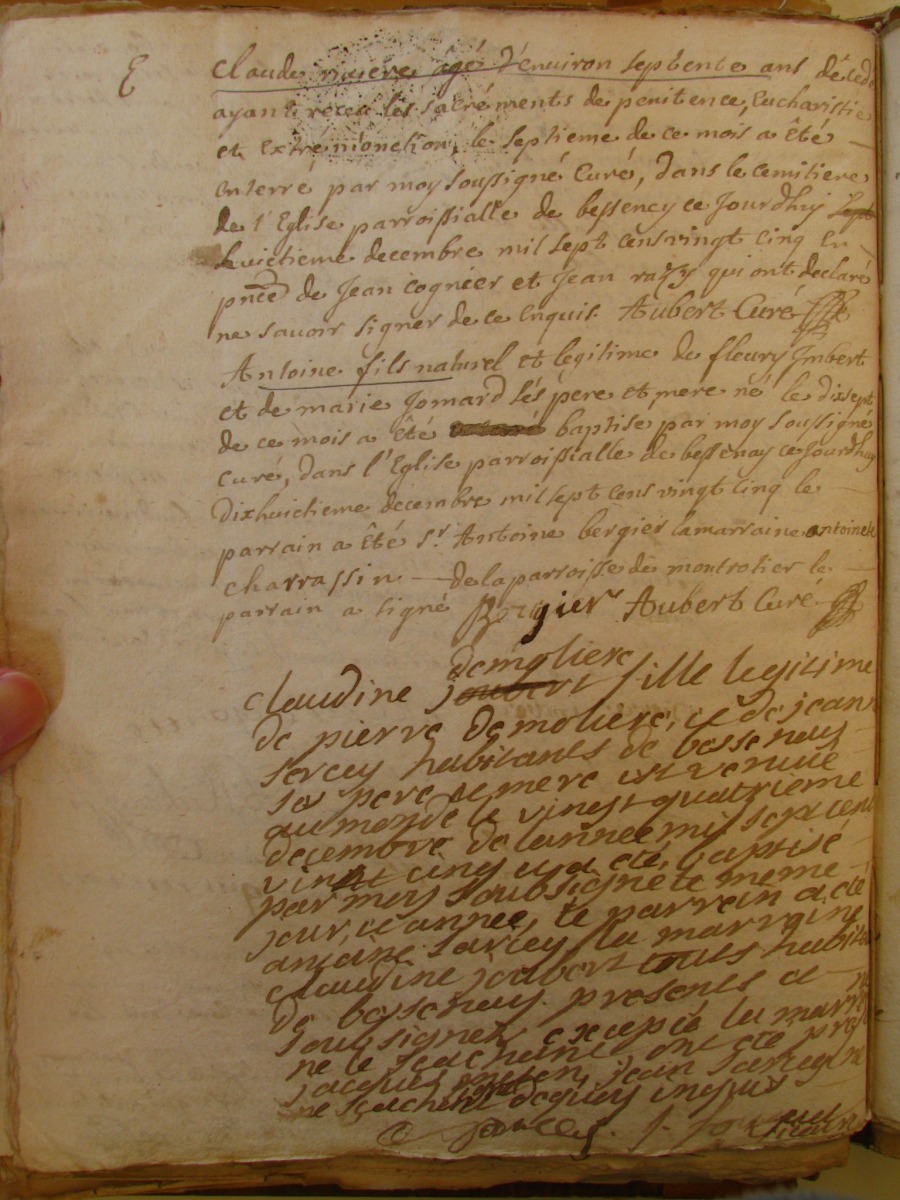 E
Claude riviere âgé d'environ septente ans décedé
ayant receu lês sacréments de penitence, Eucharistie
et Extrémionction, le septieme de ce mois a Êté
enterré par moy soussigné Curé, dans le cemitiere
de l'Eglise parroissialle de besseney ce Jourdhuy sept
huictieme decembre mil sept cens vingt cinq En
pnce de Jean cognier et Jean qui ont declaré
ne savoir signer de ce Enquis. Aubert Curé
Antoine fils naturel et legitime de fleury Jmbert
et de marie Jomard sés pere et mere né le dixsept
de ce mois a êté baptise par moy soussigné
curé, dans l'Eglise parroissialle de bessenay ce Jourdhuy
Dixhuictieme decembre mil sept cens vingt cinq le
parrain a Êté sr. Antoine bergier la marraine antoinete
charrassin de la parroisse de montrotier le
parrain a signé Bergier Aubert Curé
demoliere
Claudine joubert fille legitime
de pierre demoliere, et de jeanne
sercey habitants de bessenay
ses pere et mere est venuë
au monde le vingt quatrieme
decembre de lannee mil sept cent
vingt cinq et a été baptisé
par moy soubsigné le meme
jour, et annee, le parrain a été
antoine sarcey la marraine
claudine joubert touts habitans
de bessenay presents et
soussignez excepté la marr
ne le scachant ont été
jacques jean
ne scachent dequoy enquis